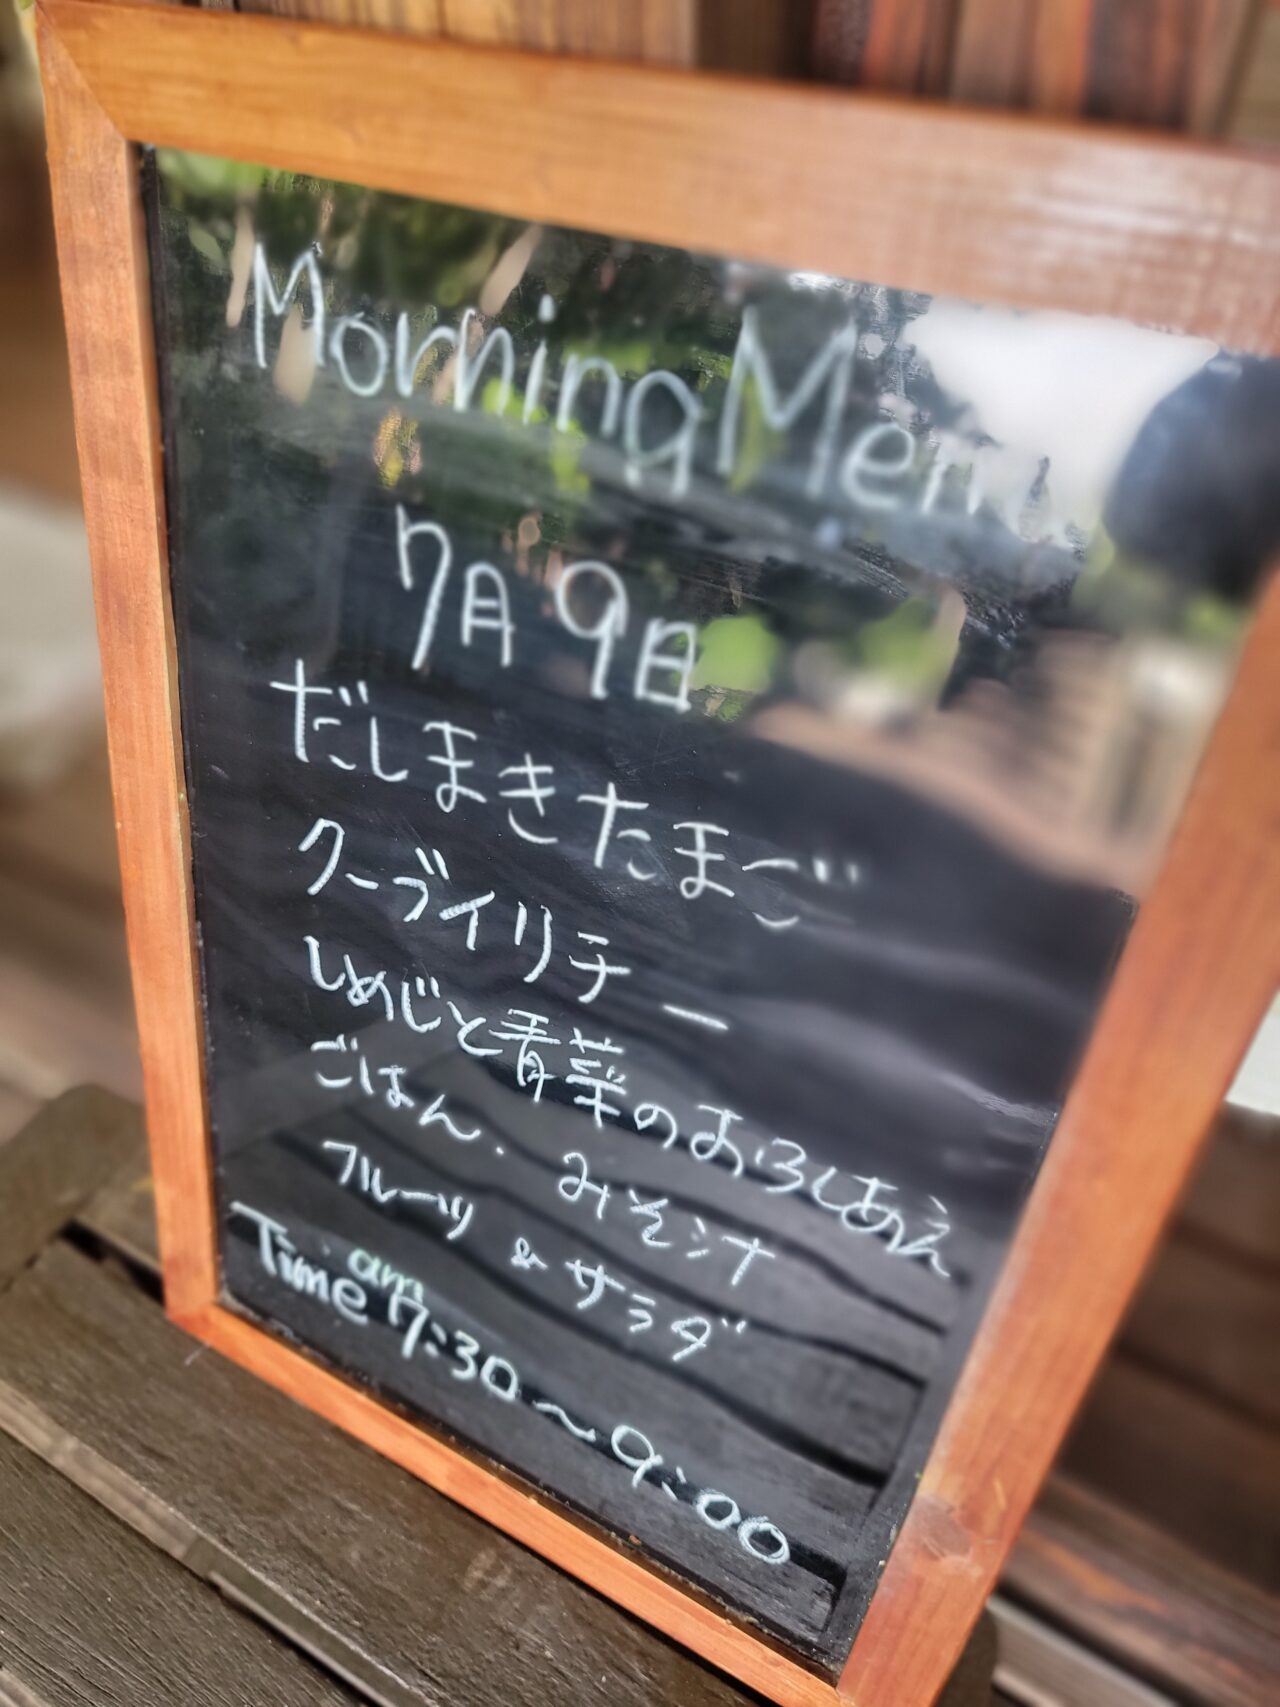 Morning Menu
7月9日
だしまきたまご
クーブイリチー
しめじと青菜のおろしあえ
ごはん・みそ汁
フルーツ & サラダ
Time am 7:30～9:00